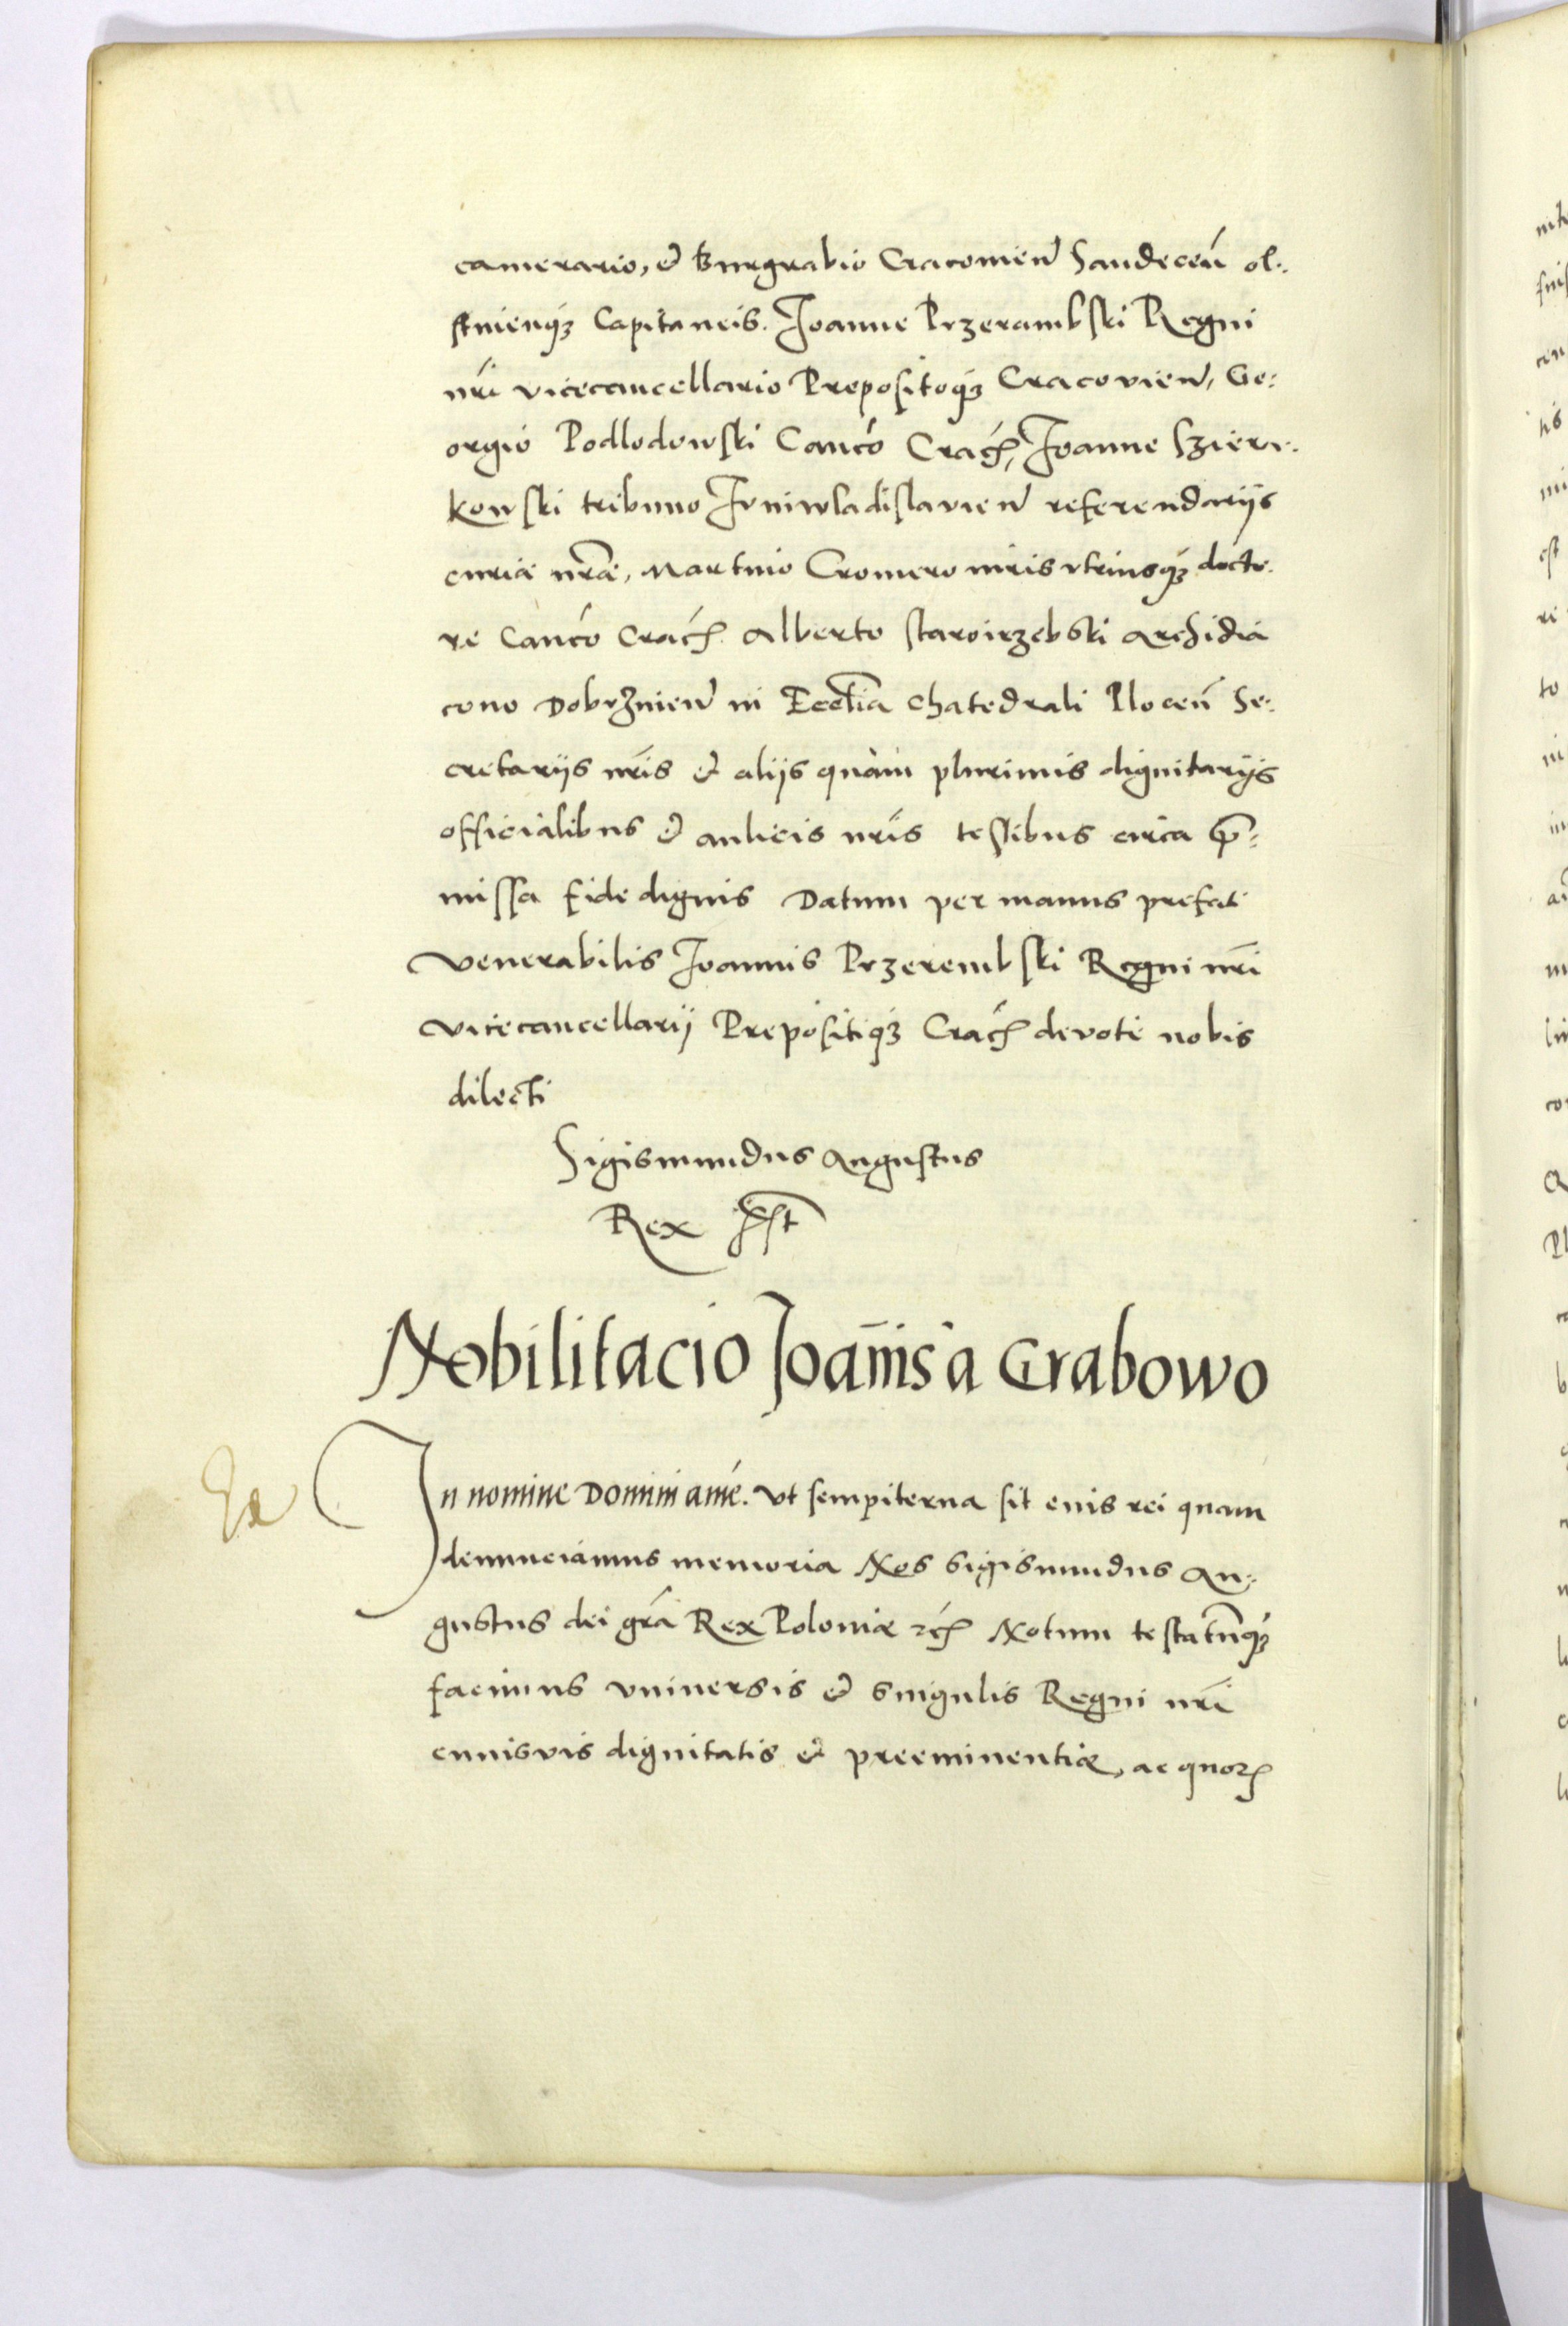 camerario, et Burgrabio Cracovien̄ Sandeceń ol:
stnienq́ꝫ Capitaneis. Joanne Przerambski Regni
nr̄i vicecancellario Prepositoq́ꝫ Cracovien̄, Ge:
orgio Podlodowski Canco Cracꝭ, Joanne Szier:
kowski tribuno Juniwladislavien̄ referendarijs
curiæ nr̄æ, Martino Cromero iuris vtriusq́ꝫ docto:
re Canco Cracꝭ Alberto staroirzebski Archidia
cono Dobrzynien̄ in Ecctīa chatedrali Plocen̄ Se:
cretarijs nr̄is et alijs quàm plurimis dignitarijs
officialibus et aulicis nr̄is testibus circa p̄:
missa fide dignis Datum per manus prefati
Venerabilis Joannis Przerembski Regni nr̄i
Vicecancellarij Prepositiq́ꝫ Cracꝭ devote nobis
dilecti
Sigismundus Augustus
Rex
Nobilitacio Joan̄is à Grabowo
In nomine Domini amē. Vt sempiterna sit euis rei quam
denunciamus memoria Nos Sigismundus Au:
gustus dei gr̄a Rex Poloniæ ꝛcꝭ Notum testatūq́ꝫ
facimus vniuersis et singulis Regni nr̄i
cuiusvis dignitatis et preeminentiæ, ac quoꝝ